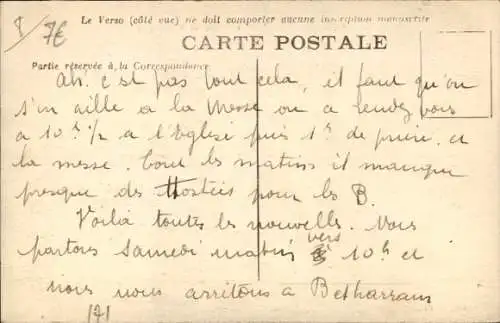 8/ 7€
Le Verso (côté vue) ne doit comporter aucune inscription manuscrite
CARTE POSTALE
Partie réservée à la Correspondance
Ah! c'est pas tout cela, il faut qu'on
s'en aille a la Messe on a rendez vous
a 10h 1/2 a l'Eglise puis 1h de prière et
la messe. Tout les matins il manque
presque des Hosties pour les B.
Voilà toutes les nouvelles. Nous
partons Samedi matin vers 10h et
nous nous arretons a Betharram
171